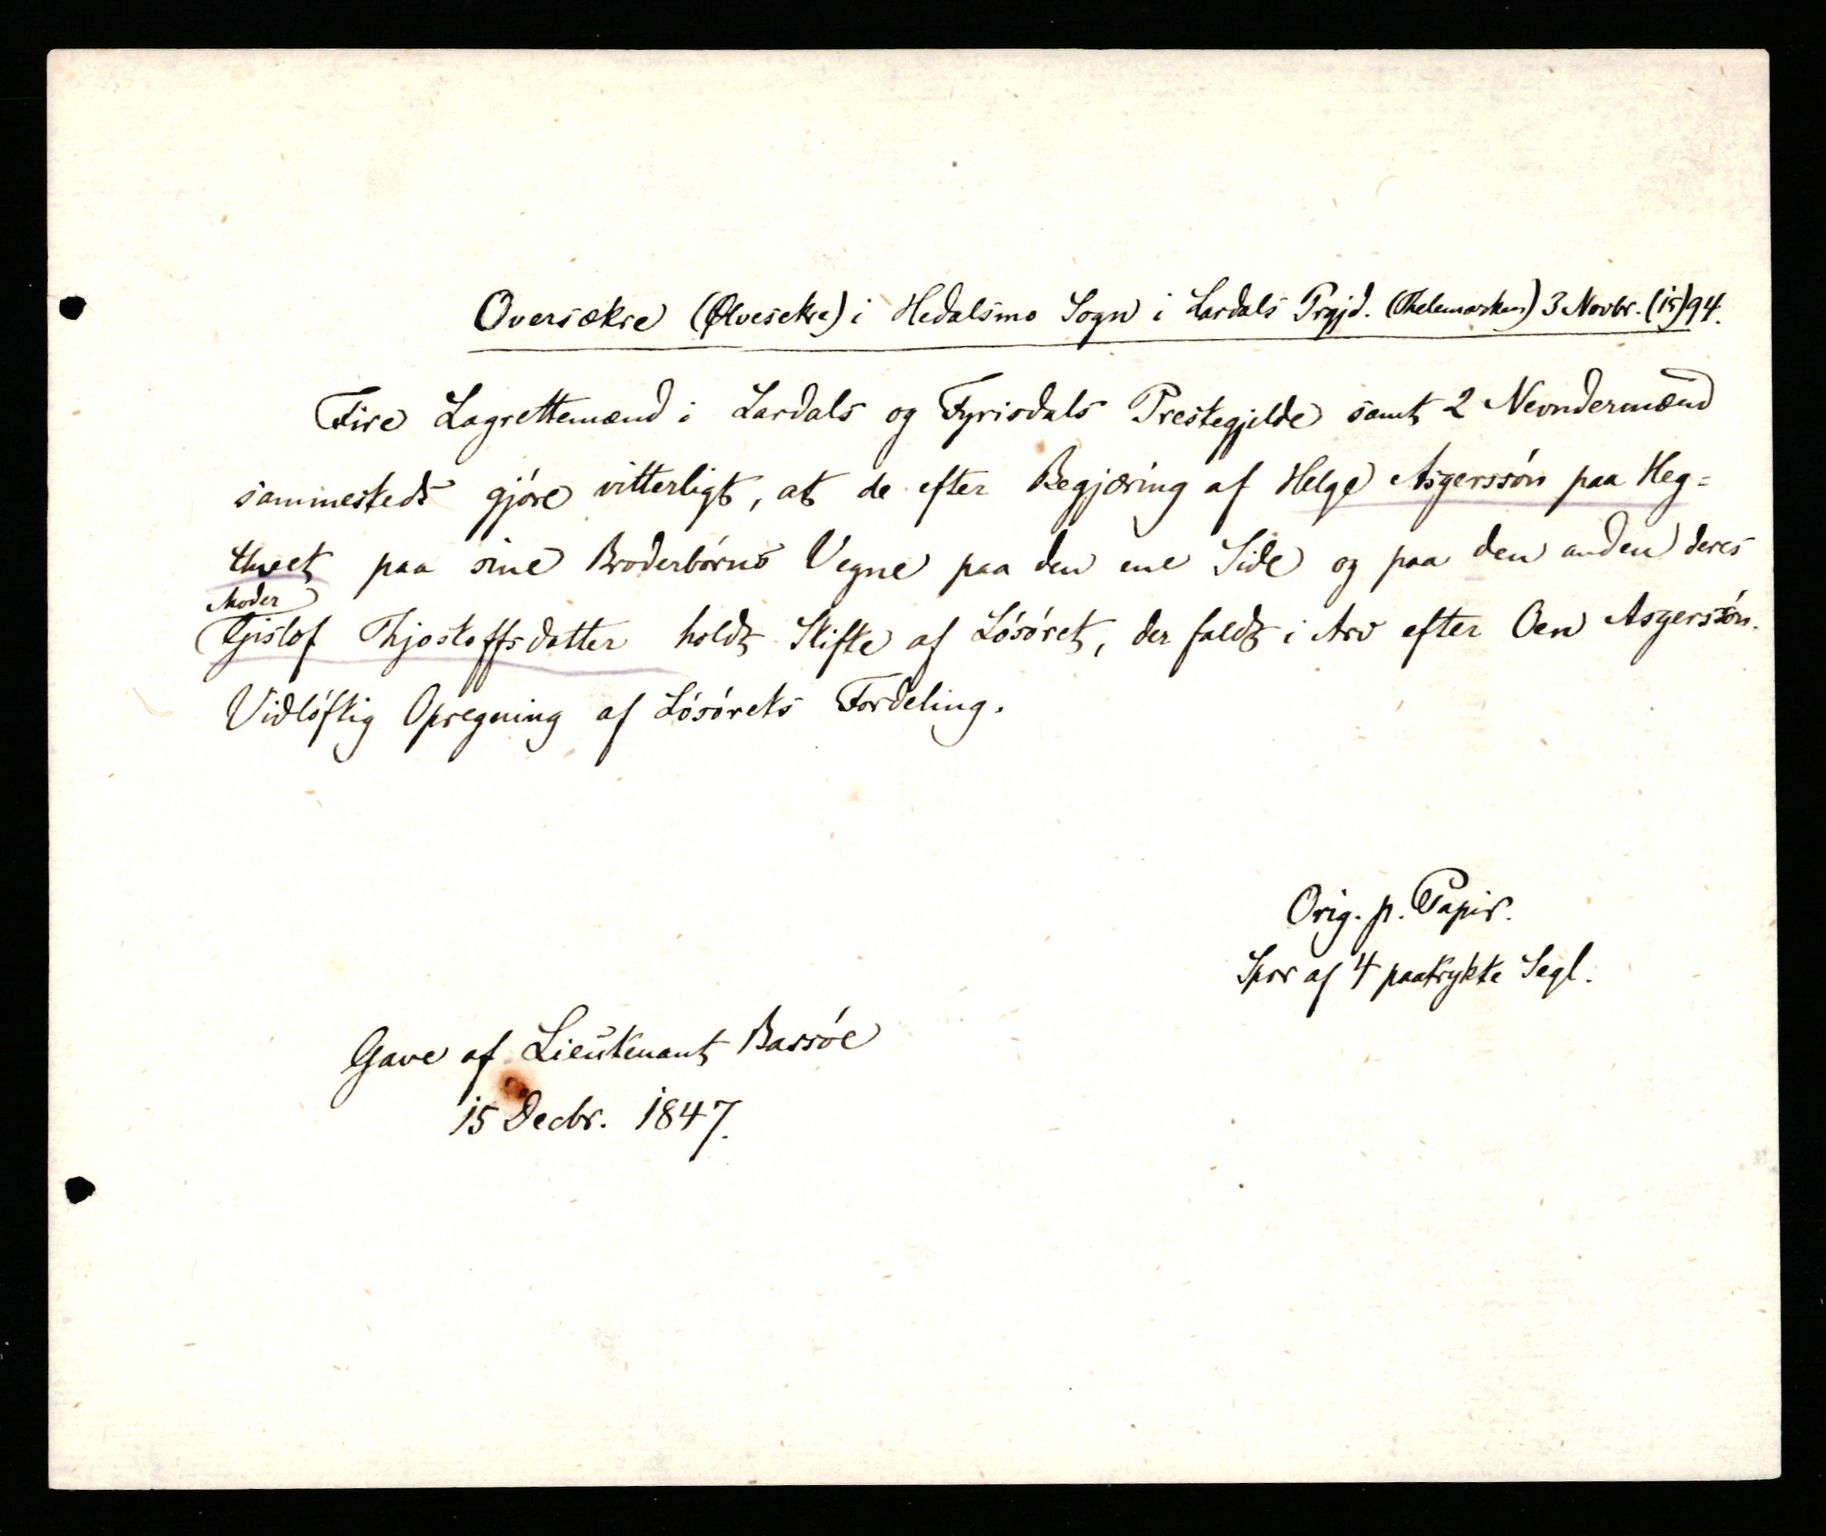 Oversækre (Ølvesekre) i Hedalsmo Sogn i Lardals Prgjd. (Thelemarken) 3 Novbr. (15)94.
Fire Lagrettemænd i Lardals og Fyrisdals Prestegjilde samt 2 Nevndermænd
sammesteds gjöre vitterligt, at de efter Begjæring af Helge Asgerssön paa Heg=
thvet paa sine Broderbörns Vegne paa den ene Side og paa den anden deres
Moder
Gislof Thjostoffsdatter holdt Skifte af Lösöret, der faldt i Arv efter Oen Asgerssön.
Vidlöftig Opregning af Lösörets Fordeling.
Orig. p. Papir.
Spor af 4 paatrykte Segl.
Gave af Lieutenant Bassöe
15 Decbr. 1847.